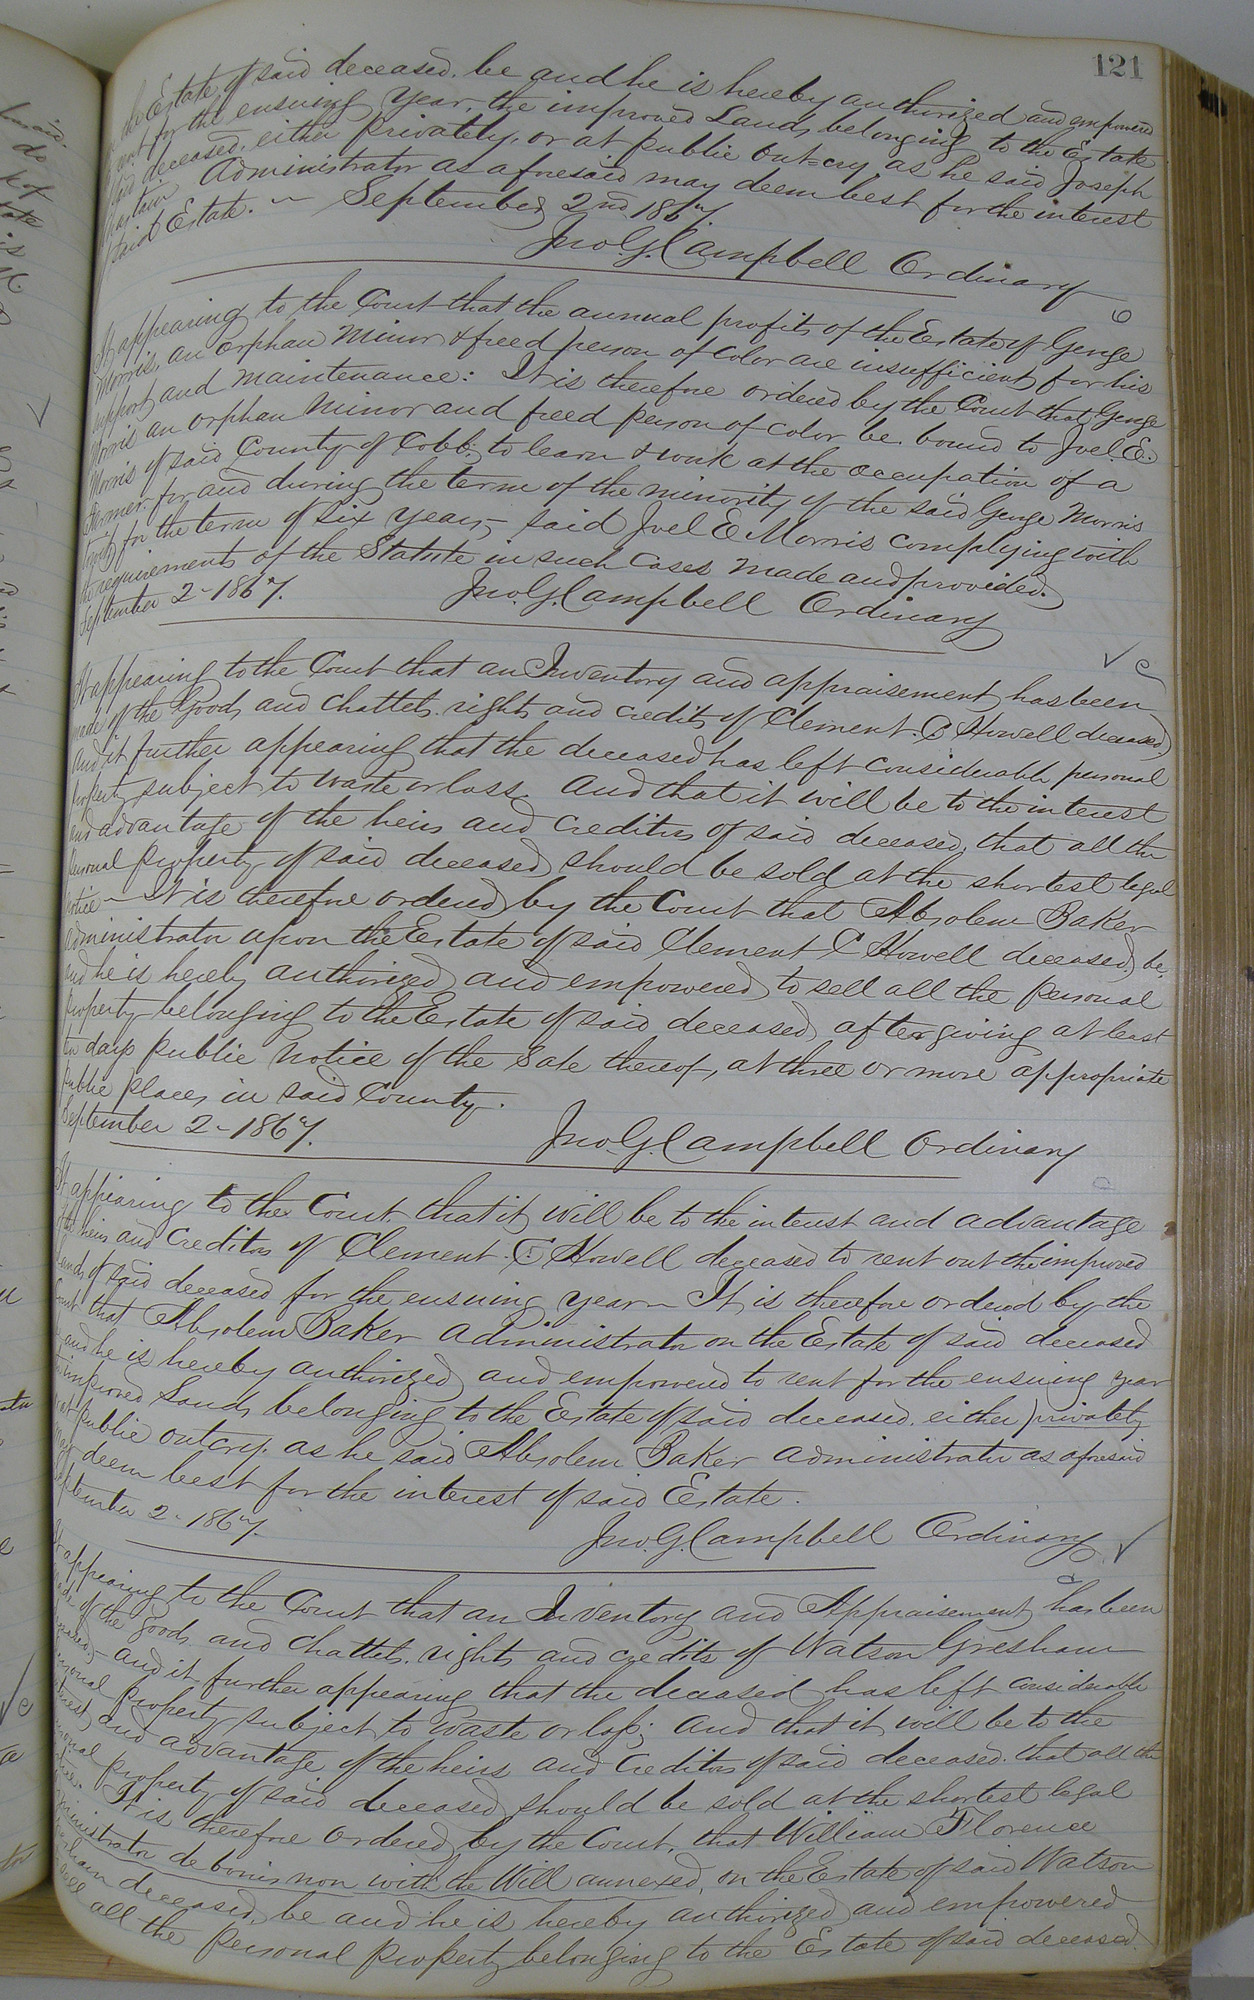 121
the Estate of said deceased. be and he is hereby authorized and empowered
rent for the ensuing year, the improved Lands belonging to the Estate
said deceased, either privately, or at public out=cry, as he said Joseph
Administrator as aforesaid may deem best for the interest
said Estate. — September 2nd 1867.
Jno. G. Campbell Ordinary
It appearing to the Court that the annual profits of the Estate of George
Morris, an orphan minor & freed person of color are insufficient for his
support and maintenance: It is therefore ordered by the Court that George
Morris an orphan minor and freed person of color be bound to Joel E.
Morris of said County of Cobb, to learn & work at the occupation of a
farmer. for and during the term of the minority of the said George Morris
for the term of six years,— said Joel E Morris complying with
the requirements of the Statute in such cases made and provided.
September 2- 1867. Jno. G. Campbell Ordinary
It appearing to the Court that an Inventory and appraisement has been
made of the Goods and chattels. rights and credits of Clement. C Howell deceased.
And it further appearing that the deceased has left considerable personal
property subject to waste or loss. And that it will be to the interest
and advantage of the heirs and creditors of said deceased, that all the
personal property of said deceased should be sold at the shortest legal
notice— It is therefore ordered by the Court that Absolem Baker
Administrator upon the Estate of said Clement C Howell deceased, be,
and he is hereby authorized and empowered to sell all the personal
property belonging to the Estate of said deceased after giving at least
ten days public notice of the Sale thereof, at three or more appropriate
public places in said County.
September 2- 1867. Jno. G. Campbell Ordinary
It appearing to the Court. that it will be to the interest and advantage
of the heirs and Creditors of Clement. C. Howell deceased to rent out the improved
Lands of said deceased for the ensuing year— It is therefore ordered by the
Court that Absolem Baker Administrator on the Estate of said deceased
be and he is hereby authorized and empowered to rent for the ensuing year
the improved Lands belonging to the Estate of said deceased. either privately
or at public outcry. as he said Absolem Baker administrator as aforesaid
may deem best for the interest of said Estate.
September 2- 1867. Jno. G. Campbell Ordinary
It appearing to the Court that an Inventory and Appraisement has been
made of the goods and chattels. rights and credits of Watson Gresham
deceased,— and it further appearing that the deceased has left considerable
personal property subject to waste or loss; and that it will be to the
interest and advantage of the heirs and Creditors of said deceased. that all the
personal property of said deceased should be sold at the shortest legal
notice. It is therefore Ordered by the Court, that William Florence
Administrator de bonis non with the Will annexed, on the Estate of said Watson
Gresham deceased, be and he is hereby authorized and empowered
to sell all the personal property belonging to the Estate of said deceased.